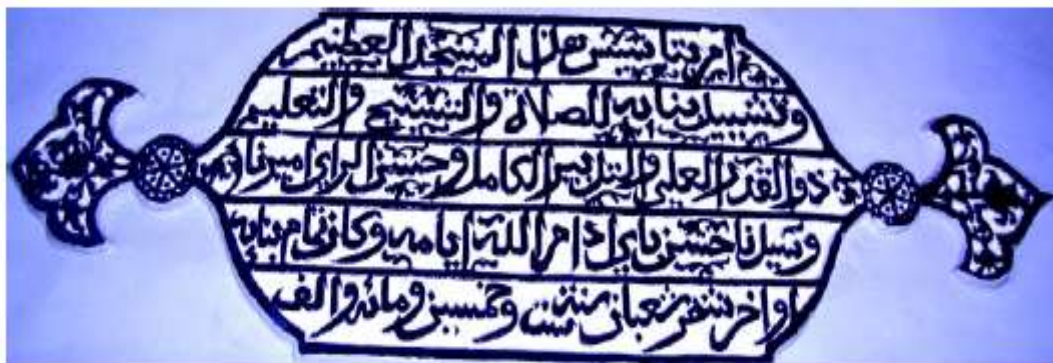 امر بتاسيس هذا المسجد العظيم
وتشييد بنايه للصلاة والتسبيح والتعليم
ذو القدر العلي والتدبير الكامل وحسن الراي اميرنا
وسيدنا حسن باي ادام الله ايامه وكان تمام بنايه
اواخر شهر شعبان سنة ست وخمسين ومائه والف